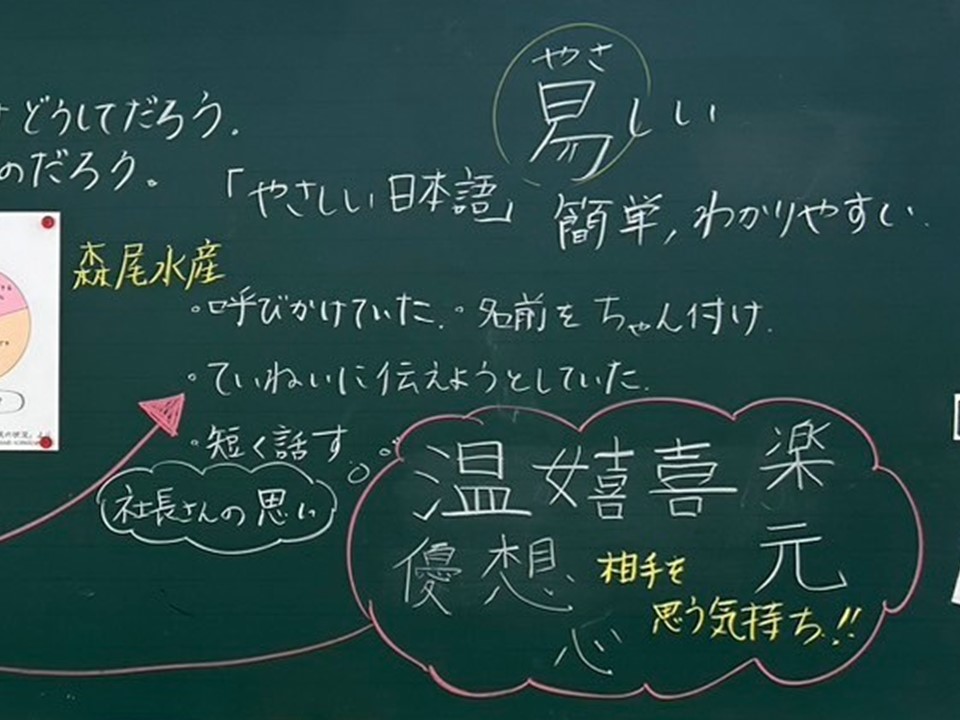 やさ
易しい
どうしてだろう。
のだろう。
「やさしい日本語」 簡単,わかりやすい.
森尾水産
・呼びかけていた.・名前をちゃん付け.
・ていねいに伝えようとしていた.
・短く話す
社長さんの思い
温 嬉 喜 楽
優 想 元
心
相手を
思う気持ち!!